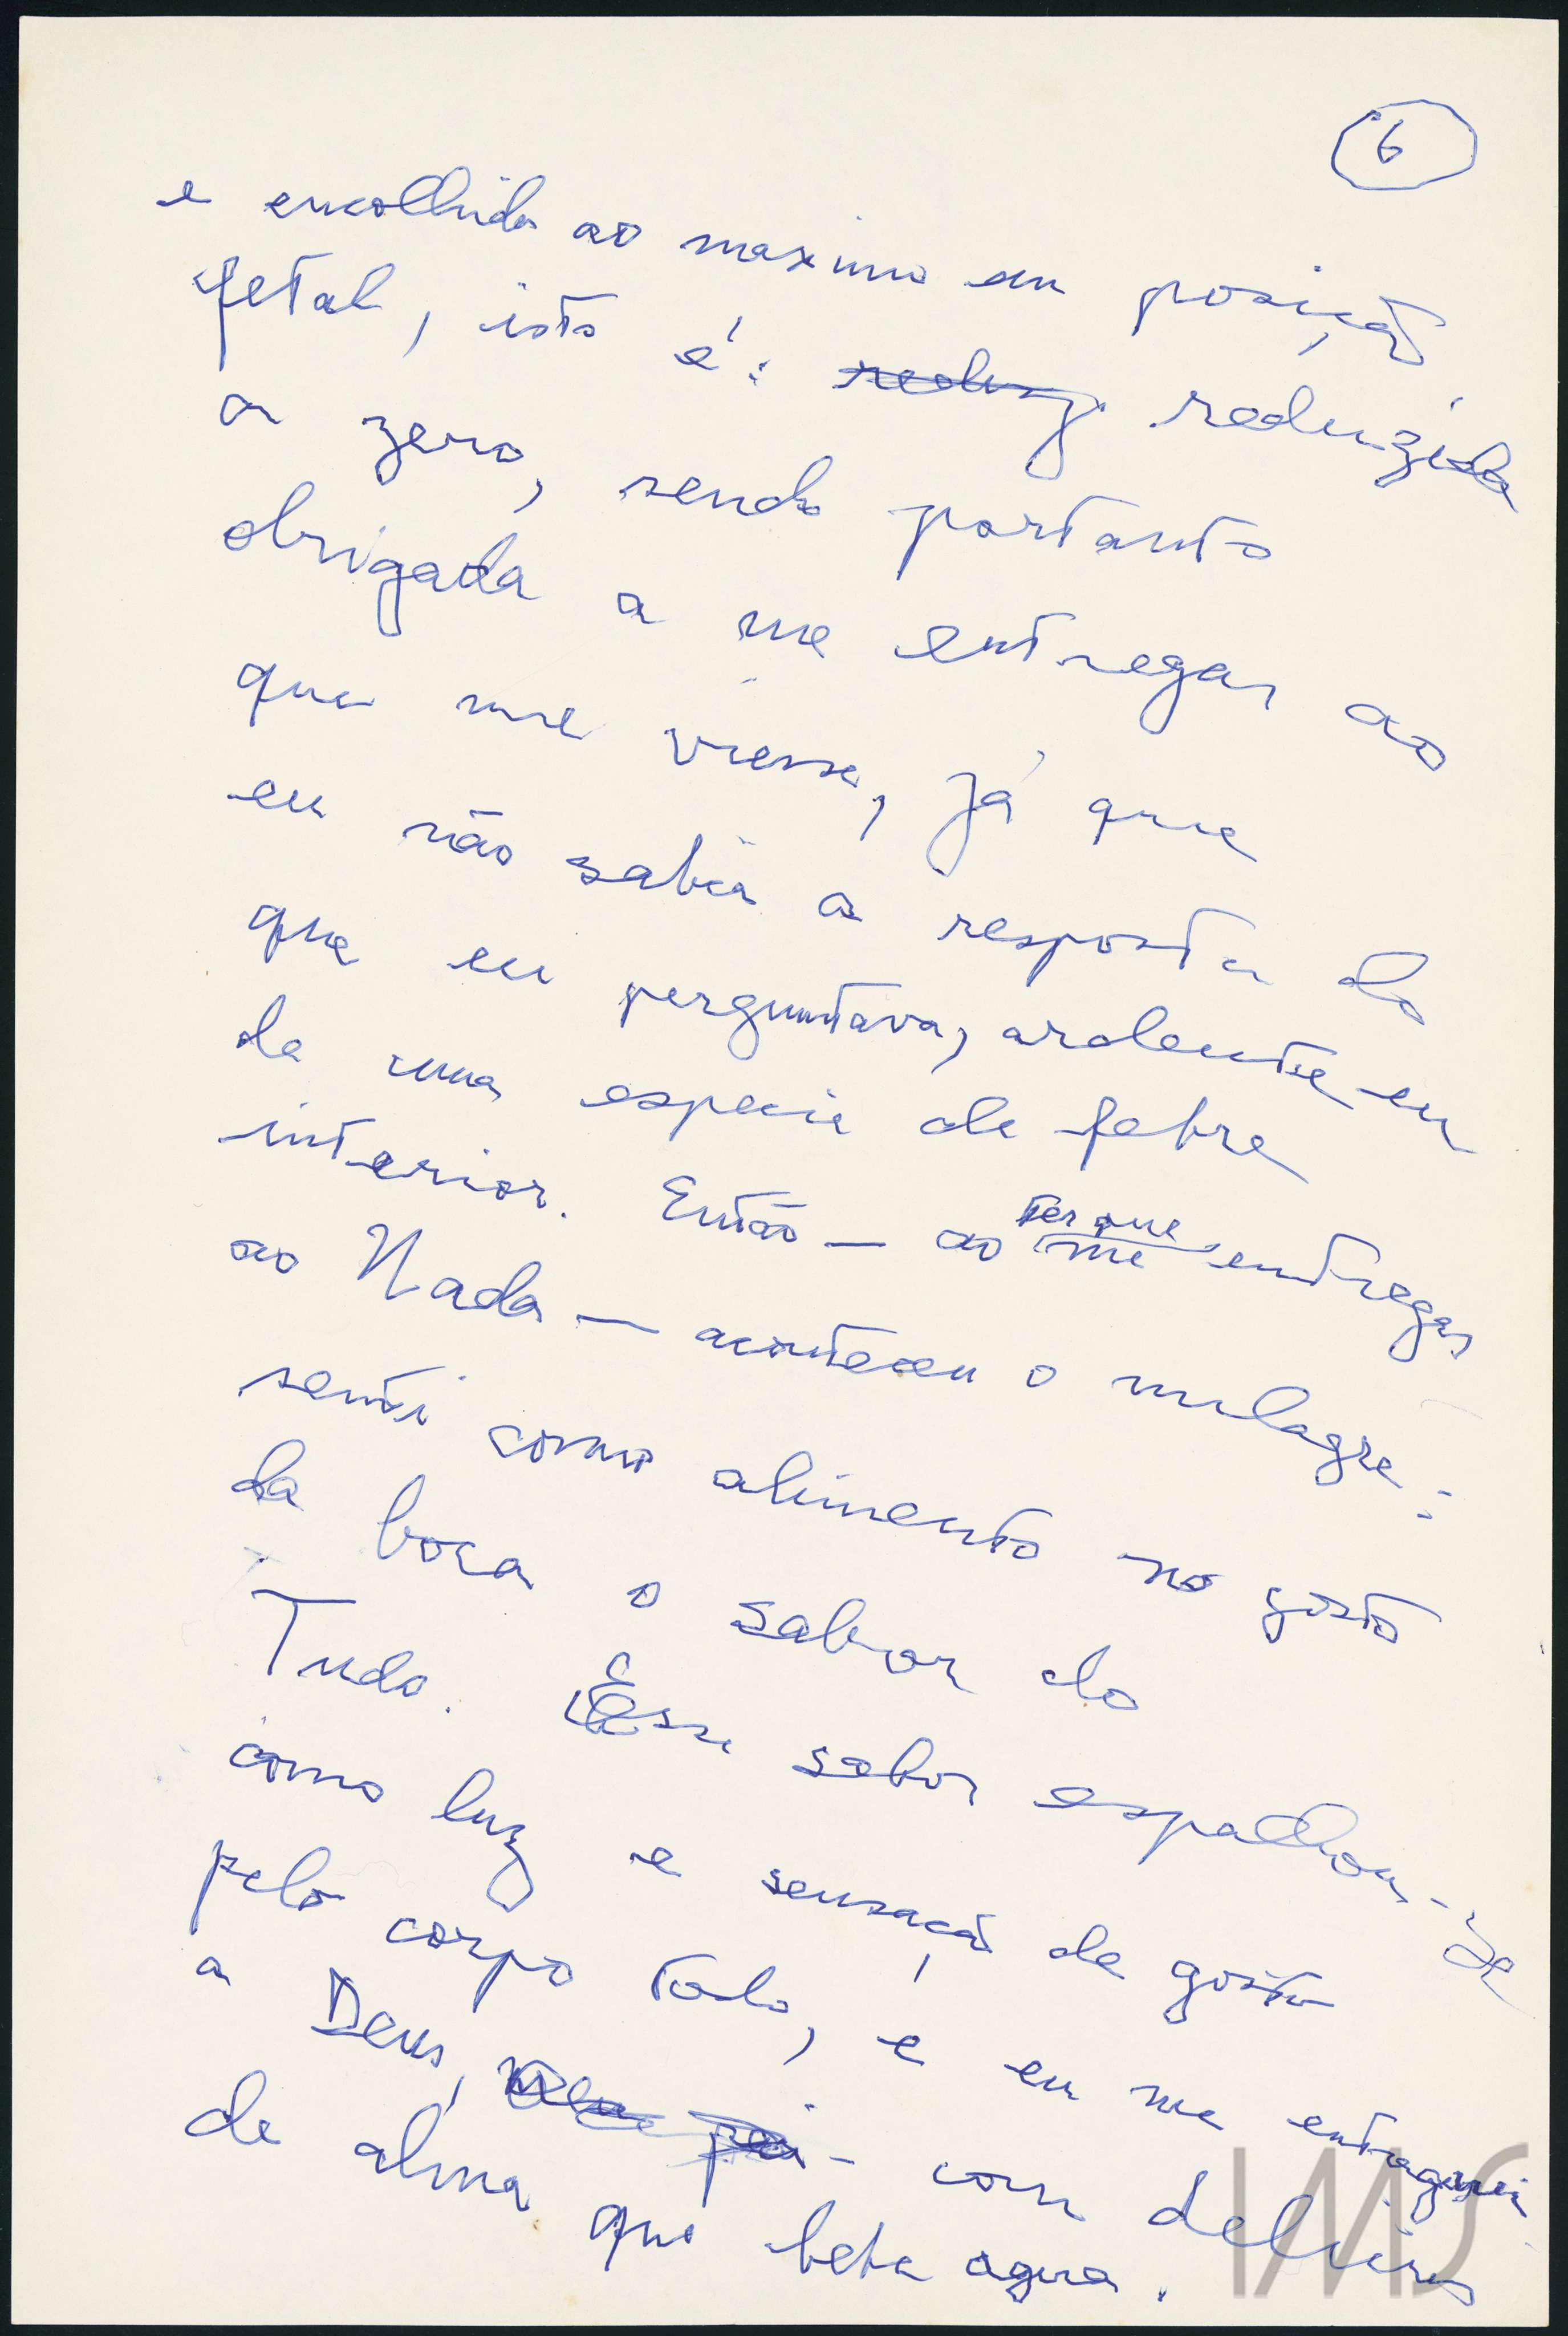 6
e encolhida ao maximo em posição
fetal, isto é: reduz reduzida
a zero, sendo portanto
obrigada a me entregar ao
que me viesse, já que
eu não sabia a resposta do
que eu perguntava, ardente eu
de uma especie de febre
interior. Então — ao ter que me entregar
ao Nada — aconteceu o milagre:
senti como alimento no gosto
da boca o sabor do
Tudo. Esse sabor espalhou-se
como luz e sensação de gosto
pelo corpo todo, e eu me entreguei
a Deus, - com delícias
de alma que bebe agua.
IMS